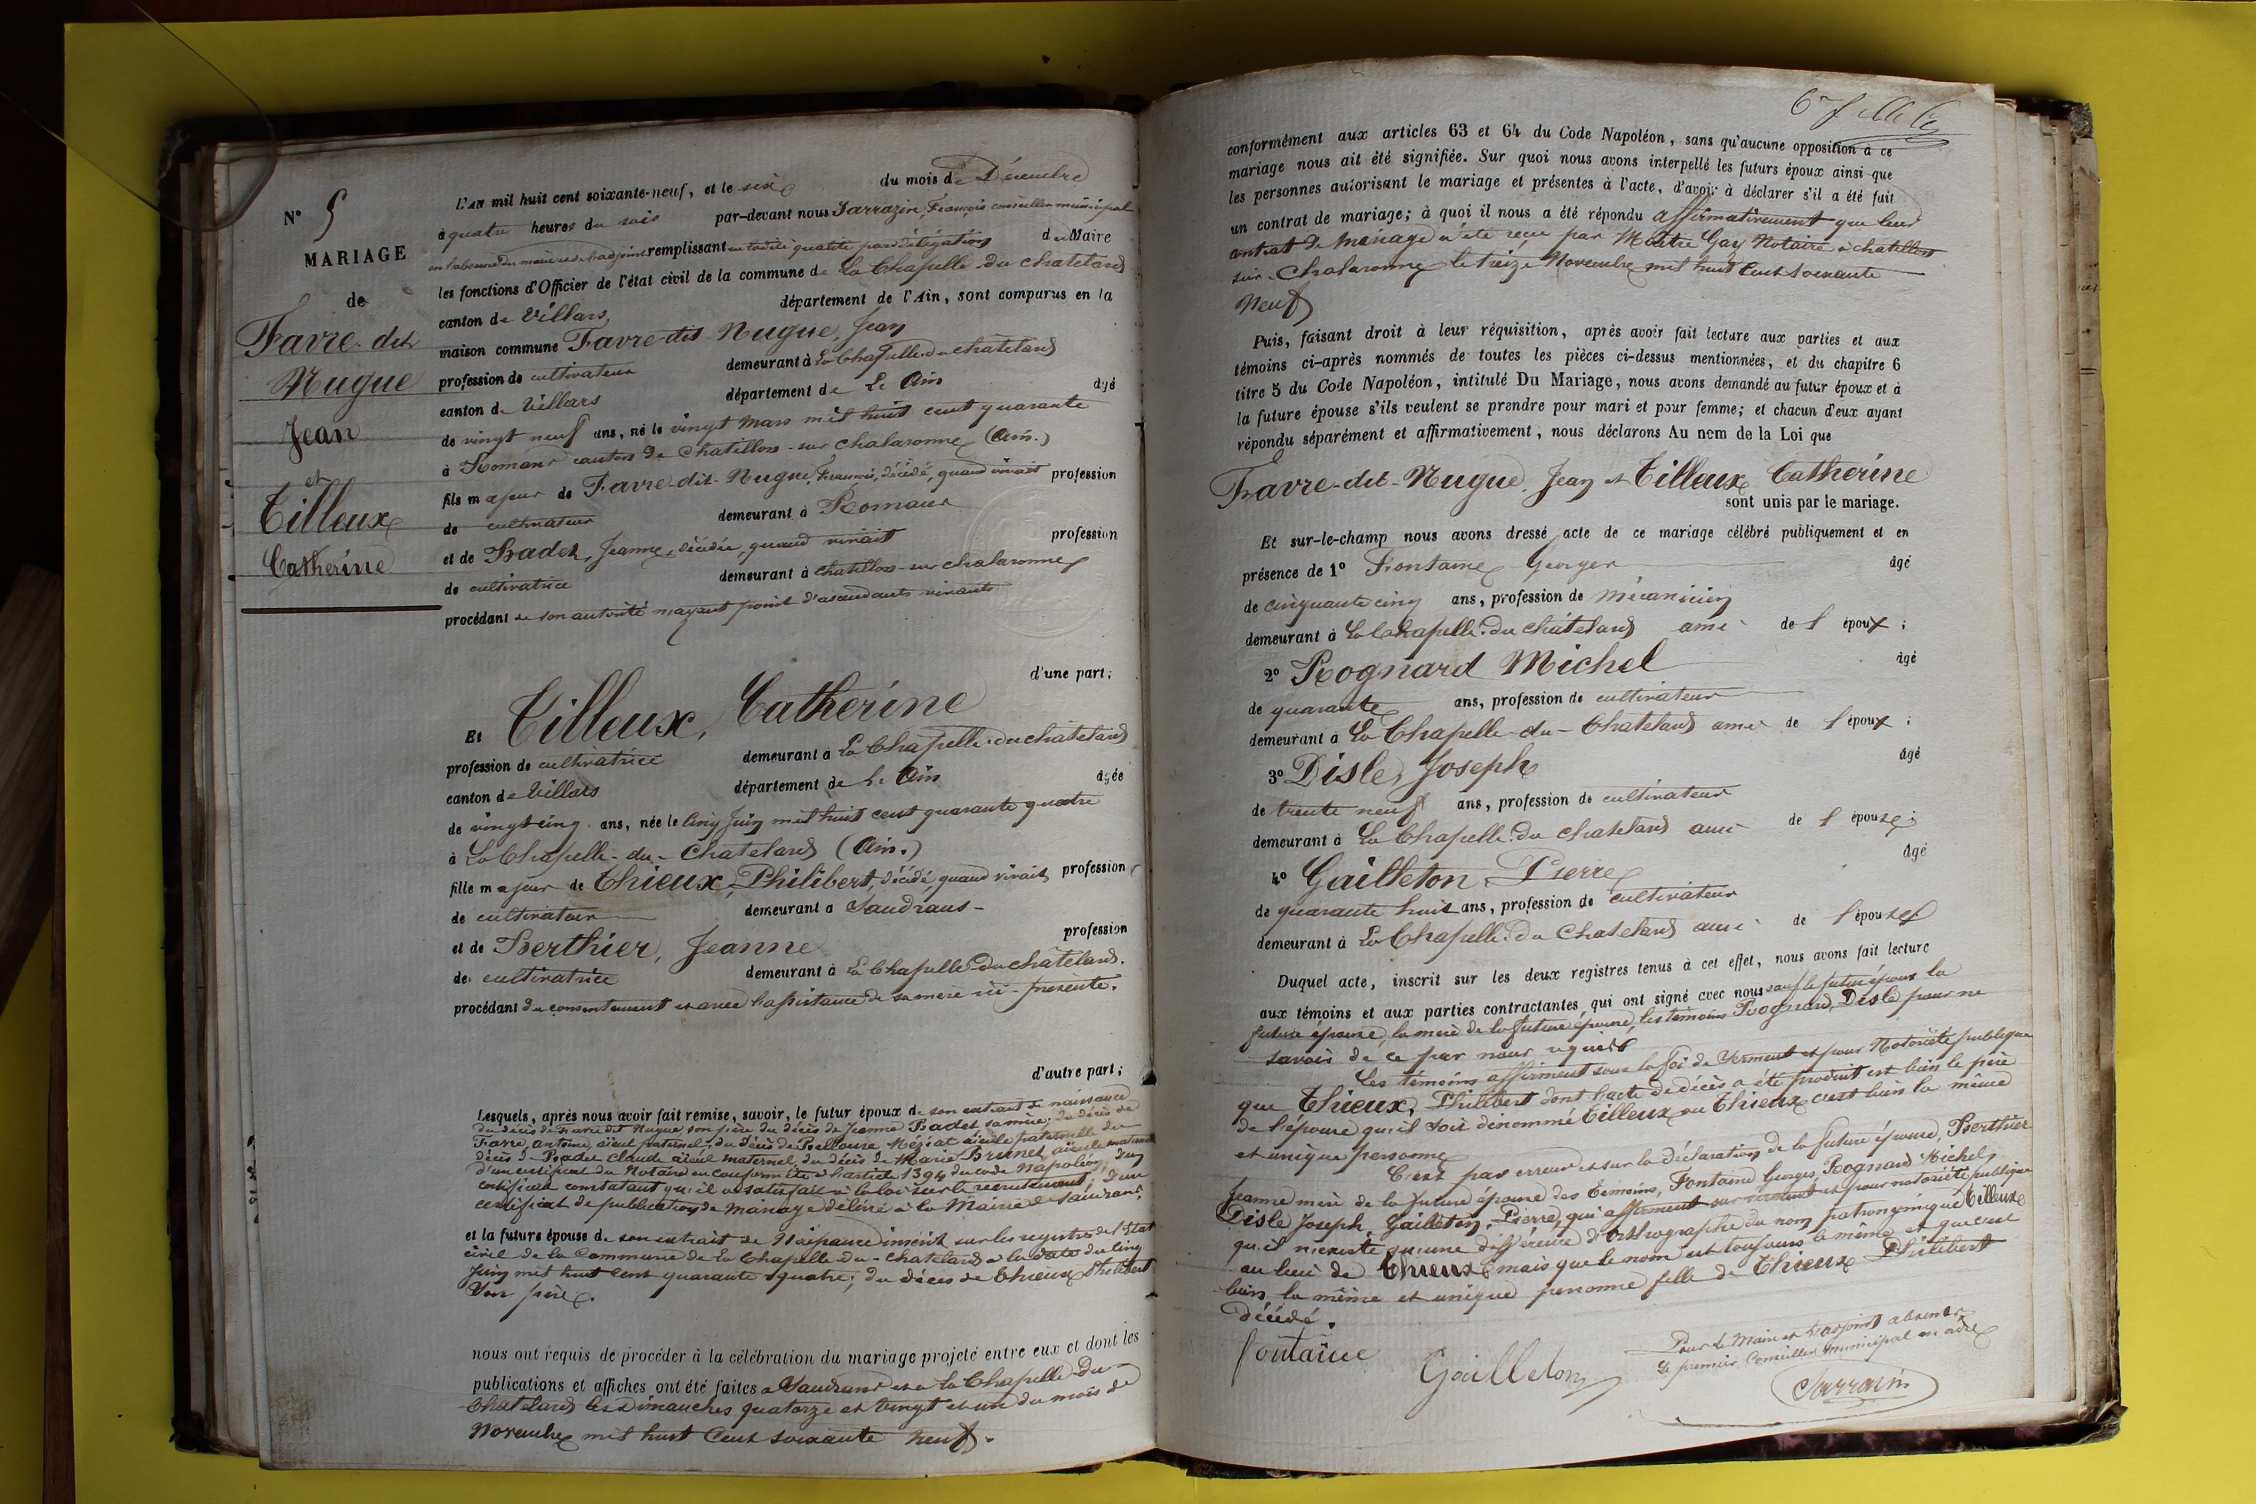 N° 5
MARIAGE
de
Favre-dit
Nugue
Jean
et
Tilleux
Catherine
L'AN mil huit cent soixante-neuf, et le six du mois de Décembre
à quatre heures du soir par-devant nous Sarrazin, François conseiller municipal
en l'absence du maire et de l'adjoint remplissant en tadite qualité par délégation du Maire
les fonctions d'Officier de l'état civil de la commune de La Chapelle-du-chatelard
canton de Villars, département de l'Ain, sont comparus en la
maison commune Favre-dit Nugue, Jean
profession de cultivateur demeurant à La Chapelle-du-chatelard
canton de Villars département de L'Ain âgé
de vingt neuf ans, né le vingt Mars mil huit cent quarante
à Romans canton de Chatillon-sur-chalaronne (Ain.)
fils majeur de Favre-dit-Nugue, François, décédé, quand vivait profession
de cultivateur demeurant à Romans
et de Badet, Jeanne, décédée, quand vivait profession
de cultivatrice demeurant à chatillon-sur-chalaronne
procédant de son autorité n'ayant point d'ascendants vivants
d'une part;
Et Tilleux, Catherine
profession de cultivatrice demeurant à La Chapelle-du-chatelard
canton de Villars département de L'Ain âgée
de vingt cinq ans, née le cinq Juin mil huit cent quarante quatre
à La Chapelle-du-Chatelard (Ain.)
fille majeur de Thieux, Philibert, décédé, quand vivait, profession
de cultivateur demeurant à Sandrans-
et de Berthier, Jeanne profession
de cultivatrice demeurant à La Chapelle-du-chatelard.
procédant du consentement et avec l'assistance de sa mère ici-présente.
d'autre part;
Lesquels, après nous avoir fait remise, savoir, le futur époux de son extrait de naissance
du décès de Favre dit Nugue son père du décès de Jeanne Badet sa mère; du décès de
Favre, antoine, aïeul paternel; du décès de Méziat aïeule paternelle du
décès de Badet claude aïeul maternel, du décès de Marie Brunet, aïeule maternelle
d'un certificat du Notaire en conformité à l'article 1394 du code Napoléon, d'un
certificat constatant qu'il a satisfait à la loi sur le recrutement; d'un
certificat de publication de mariage délivré à la Mairie de Sandrans,
et la future épouse de son extrait de Naissance inscrit sur les registres de l'Etat
civil de la Commune de La Chapelle-du-Chatelard à la date du cinq
Juin mil huit Cent quarante quatre; du décès de Thieux Philibert
son père.
nous ont requis de procéder à la célébration du mariage projeté entre eux et dont les
publications et affiches ont été faites à Sandrans et à La Chapelle Du
Chatelard les Dimanches quatorze et vingt et un du mois de
Novembre mil huit Cent soixante neuf.
conformément aux articles 63 et 64 du Code Napoléon, sans qu'aucune opposition à ce
mariage nous ait été signifiée. Sur quoi nous avons interpellé les futurs époux ainsi que
les personnes autorisant le mariage et présentes à l'acte, d'avoir à déclarer s'il a été fait
un contrat de mariage; à quoi il nous a été répondu affirmativement que leur
contrat de Mariage a été reçu par Maître Gay Notaire à chatillon
sur-Chalaronne le treize Novembre mil huit Cent soixante
Neuf
Puis, faisant droit à leur réquisition, après avoir fait lecture aux parties et aux
témoins ci-après nommés de toutes les pièces ci-dessus mentionnées, et du chapitre 6
titre 5 du Code Napoléon, intitulé Du Mariage, nous avons demandé au futur époux et à
la future épouse s'ils veulent se prendre pour mari et pour femme; et chacun d'eux ayant
répondu séparément et affirmativement, nous déclarons Au nom de la Loi que
Favre-dit-Nugue, Jean et Tilleux Catherine
sont unis par le mariage.
Et sur-le-champ nous avons dressé acte de ce mariage célébré publiquement et en
présence de 1° Fontaine Georges âgé
de cinquante cinq ans, profession de mécanicien
demeurant à La Chapelle-du Chatelard ami de l'époux;
2° Rognard Michel âgé
de quarante ans, profession de cultivateur
demeurant à La Chapelle-du-Chatelard ami de l'époux;
3° Disle, Joseph âgé
de trente neuf ans, profession de cultivateur
demeurant à La Chapelle-du chatelard ami de l'épouse;
4° Gailleton, Pierre âgé
de quarante huit ans, profession de cultivateur
demeurant à La Chapelle-du Chatelard ami de l'épouse
Duquel acte, inscrit sur les deux registres tenus à cet effet, nous avons fait lecture
aux témoins et aux parties contractantes, qui ont signé avec nous sauf le futur époux la
future épouse, la mère de la future épouse, les témoins Rognard, Disle pour ne
savoir de ce par nous requis
Les témoins affirment sous la foi de serment et pour Notoriété publique
que Thieux, Philibert dont l'acte de décès a été produit est bien le père
de l'épouse qu'il soit dénommé Tilleux ou Thieux c'est bien la même
et unique personne
C'est par erreur et sur la déclaration de la future épouse, Berthier
Jeanne mère de la future épouse des témoins, Fontaine Georges, Rognard Michel,
Disle Joseph, Gailleton, Pierre, qui affirment sur serment et pour notoriété publique
qu'il n'existe qu'une différence d'orthographe du nom patronymique Tilleux
au lieu de Thieux mais que le nom est toujours le même et que c'est
bien la même et unique personne fille de Thieux Philibert
décédé.
fontaine
Gailleton
Pour le Maire et l'adjoint absents
Le premier Conseiller municipal
Sarrazin